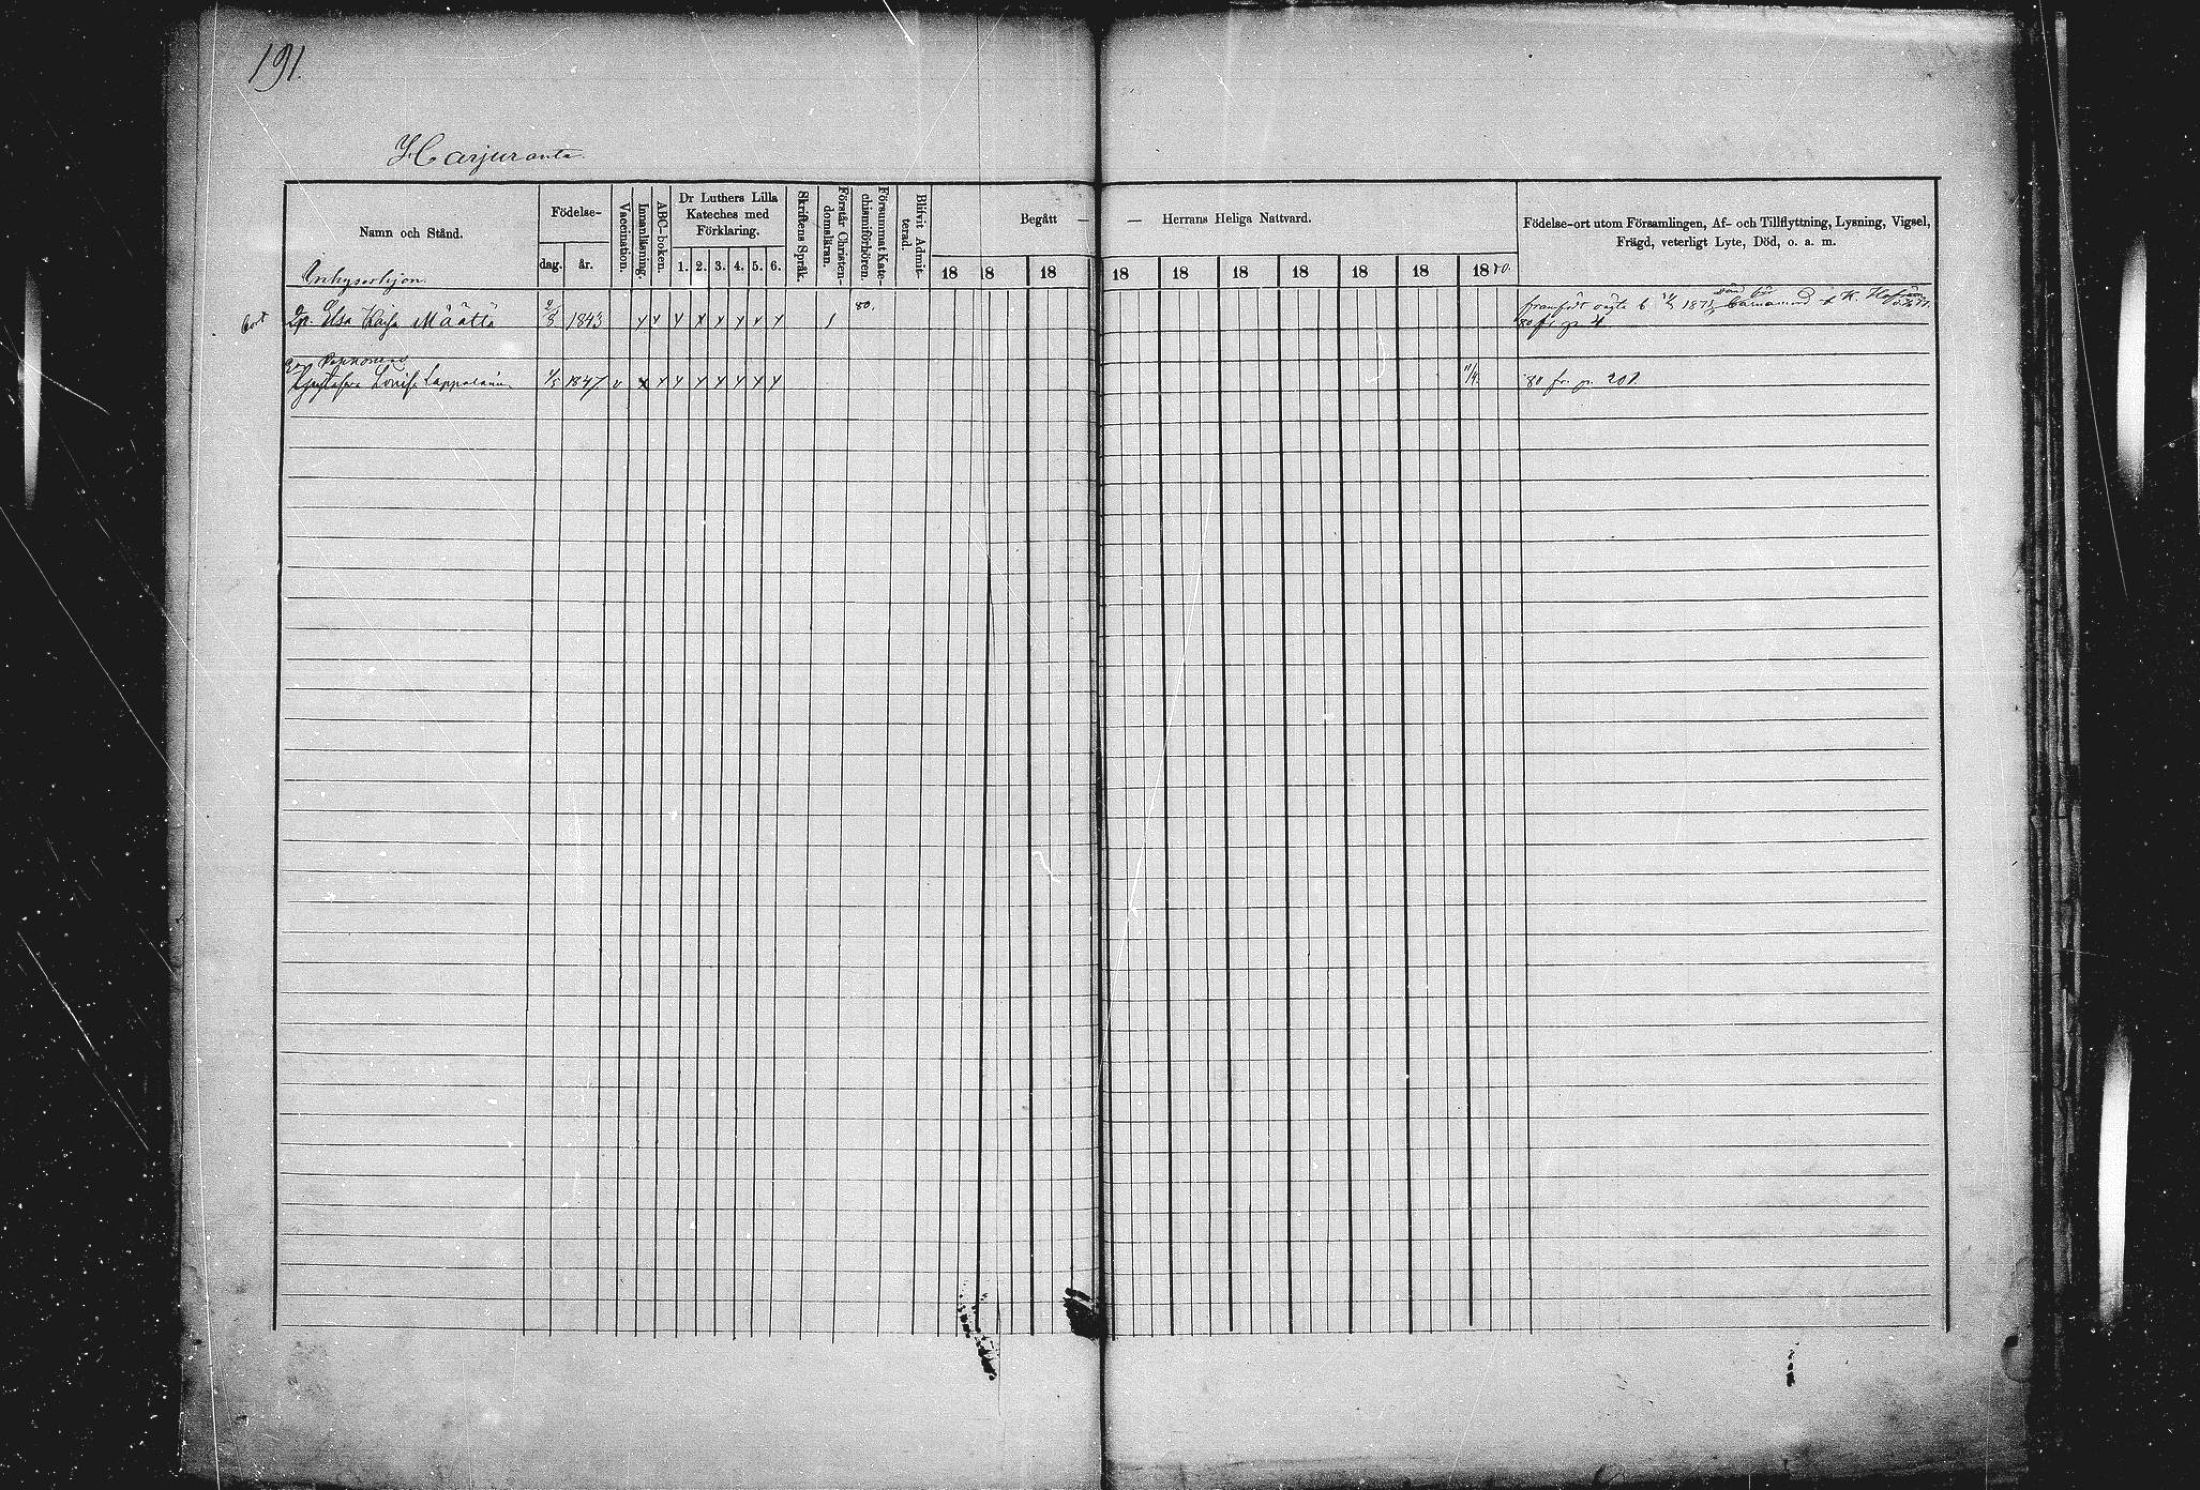 191.
Harjuranta
Namn och Stånd.
Födelse-
dag. år.
Vaccination.
Innanläsning.
ABC-boken.
Dr Luthers Lilla
Kateches med
Förklaring.
1. 2. 3. 4. 5. 6.
Skriftens Språk.
Förstår Christen-
domsläran.
Försummat Kate-
chismiförhören.
Blifvit Admit-
terad
Begått — — Herrans Heliga Nattvard.
18 18 18 18 18 18 18 18 18 1880.
Födelse-ort utom Församlingen, Af- och Tillflyttning, Lysning, Vigsel,
Frägd, veterligt Lyte, Död, o. a. m.
Inhyseshjon
bort Elsa Kaisa Määttä 2/8 1843 80. 1871
80 fr. p. 4
Gustafva Lovisa Lappalainen 1/5 1847 11/4. 80 fr. p. 201.